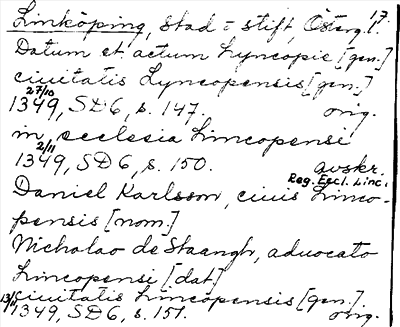 17.
Linköping, stad o stift, Österg.l.
Datum et actum Lyncopie [gen.]
ciuitatis Lyncopensis [gen.]
27/10
1349, SD 6, s. 147. orig.
in ecclesia Lincopensi
2/11
1349, SD 6, s. 150. avskr.
Reg. Eccl. Linc.
Daniel Karlsson, ciuis Linco-
pensis [nom.]
Nicholao de Staangh, aduocato
Lincopensi [dat]
ciuitatis Lincopensis [gen.]
13/11
1349, SD 6, s. 151. orig.